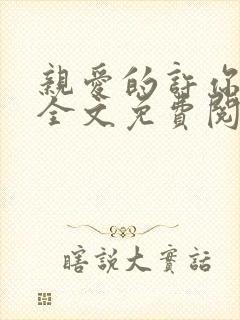 親愛的許你
全文免費閱
瞎說大實話